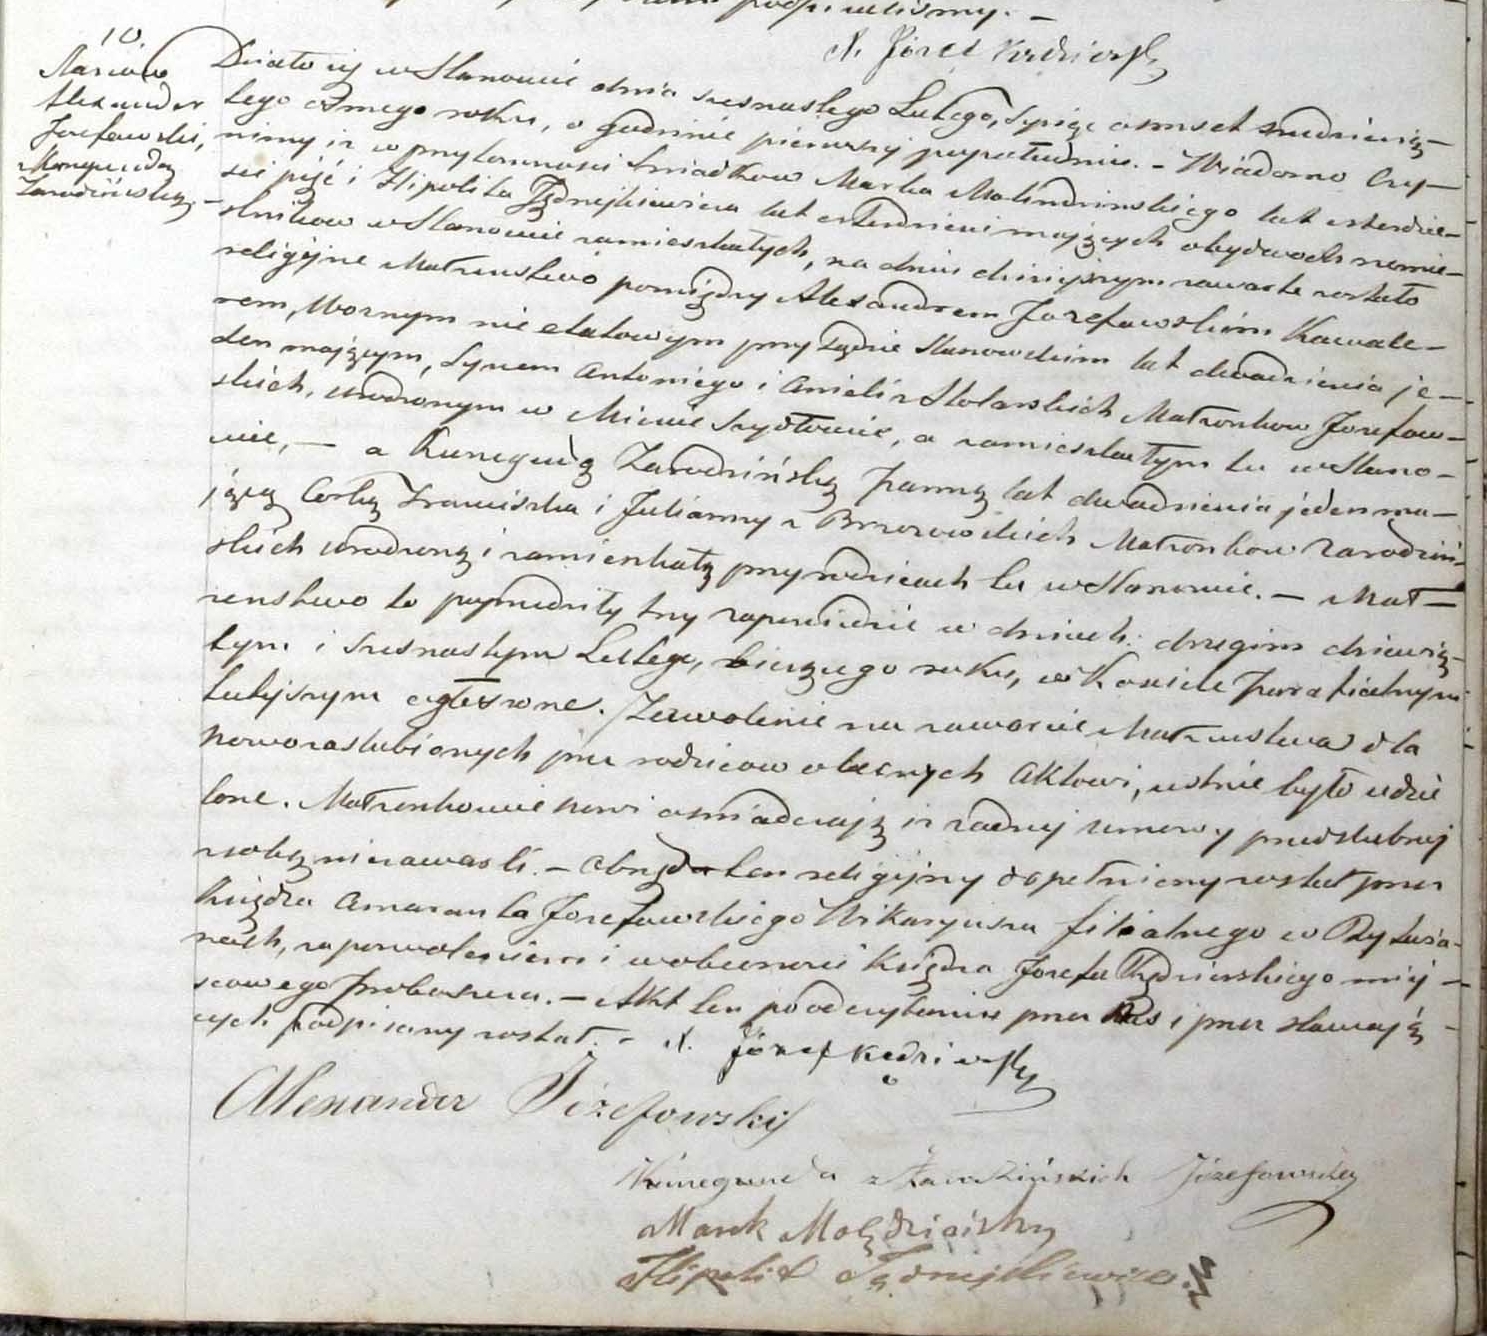 podpisaliśmy. –
X. Józef Kędzierski
10.
Alexander
Józefowski,
Działo się w Stanowie dnia szesnastego Lutego, Tysiąc osmset
tego osmego roku, o godzinie pierwszej popołudniu. – Wiadomo Czy–
nimy iż w przytomności Świadków Marka lat czterdzie–
ści pięć i Hipolita lat czterdzieści mających obydwóch rzemie–
ślników w Stanowie zamieszkałych, na dniu dzisiejszym zawarte zostało
religijne Małżeństwo pomiędzy Alexandrem Józefowskim Kawale–
rem, Woznym nie etatowym przy Stanowskim lat dwadzieścia je–
den mającym, Synem Antoniego i Anieli z Stolarskich Małżonków Józefow–
skich, urodzonym w Mieście Szydłowie, a zamieszkałym tu w Stano–
wie, – a Kunegundą Zawodzińską Panną lat dwadzieścia jeden ma–
jącą Córką Franciszka i Julianny z Brzozowskich Małżonków Zawodziń–
skich urodzoną i zamieszkałą przy rodzicach tu w Stanowie. – Mał–
żeństwo to poprzedziły trzy zapowiedzie w dniach: drugim dziewią–
tym i szesnastym Lutego, bieżącego roku, w Kościele Parafialnym
tutejszym ogłoszone. Zezwolenie na zawarcie Małżeństwa dla
nowozaślubionych przez rodziców obecnych Aktowi, ustnie było udzie
lone. Małżonkowie nowi oświadczają iż żadnej umowy przedślubnej
z sobą niezawarli. – Obrząd ten religijny dopełniony został przez
Księdza Amaranta Józefowskiego Wikaryusza filialnego w
za pozwoleniem i w obecności Księdza Józefa Kędzierskiego miej–
scowego Proboszcza. – Akt ten po odczytaniu przez Nas i przez stawają–
cych podpisany został. – X. Józef Kędzierski
Alexander Józefowski
Kunegunda z Zawodzińskich Józefowska
Marek
Hipolit